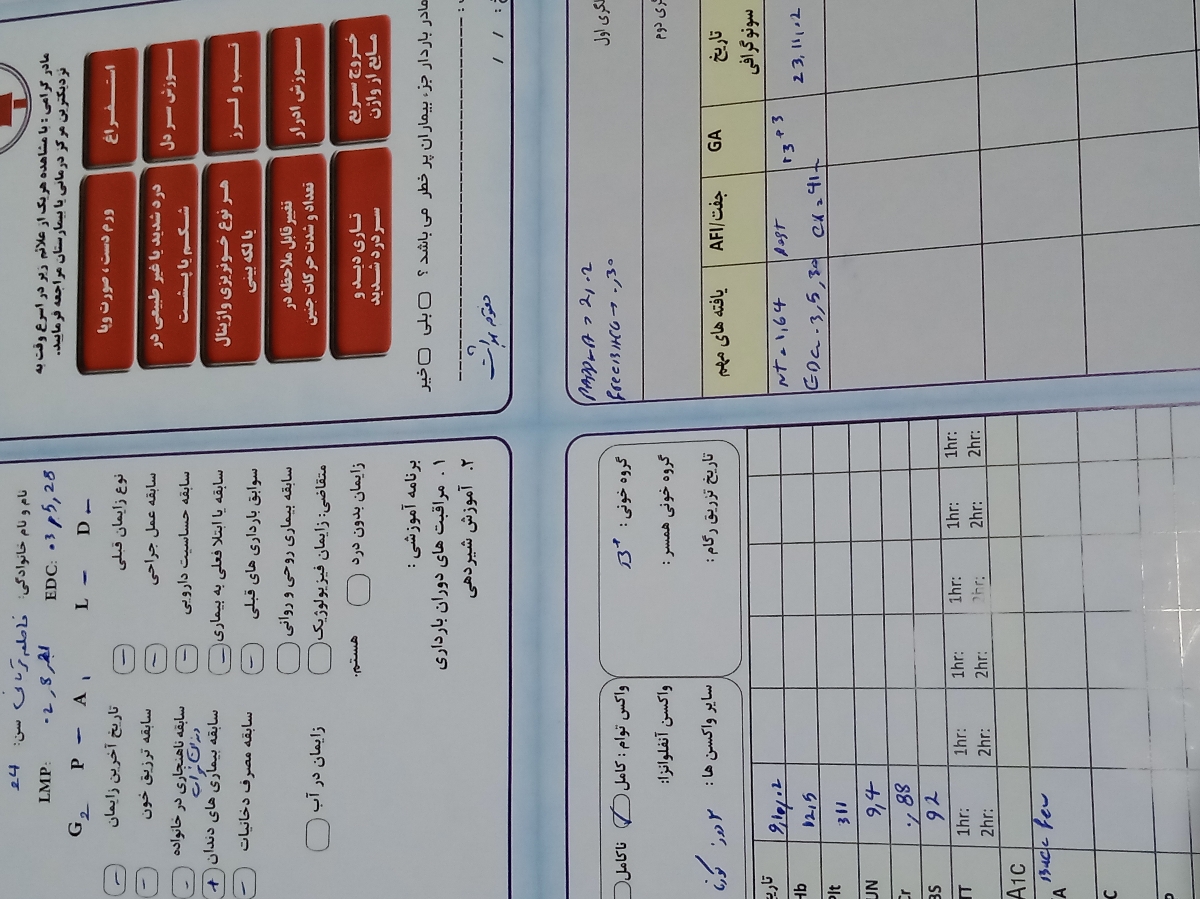 مادر گرامی : با مشاهده هریک از علائم زیر در اسرع وقت به
نزدیکترین مرکز درمانی یا بیمارستان مراجعه فرمایید.
استفراغ
ورم دست ، صورت و پا
سوزش سر دل
درد شدید یا غیر طبیعی در شکم یا پشت
تب و لرز
هر نوع خونریزی واژینال یا لکه بینی
سوزش ادرار
تغییر قابل ملاحظه در تعداد و شدت حرکات جنین
خروج سریع مایع از واژن
تاری دید و سردرد شدید
مادر باردار جزء بیماران پر خطر می باشد ؟ بلی خیر
نام و نام خانوادگی: سن: 24
LMP: EDC: 03,5,28
G 2 P – A 1 L – D –
تاریخ آخرین زایمان –
نوع زایمان قبلی –
سابقه تزریق خون –
سابقه عمل جراحی –
سابقه ناهنجاری در خانواده –
سابقه حساسیت دارویی –
سابقه بیماری های دندان +
سابقه یا ابتلا فعلی به بیماری –
سابقه مصرف دخانیات –
سوابق بارداری های قبلی –
سابقه بیماری روحی و روانی
متقاضی: زایمان فیزیولوژیک
زایمان بدون درد
زایمان در آب
هستم.
برنامه آموزشی :
۱. مراقبت های دوران بارداری
۲. آموزش شیردهی
گری اول
گری دوم
PAPP-A → 2,02
free BHCG → 0,30
یافته های مهم جفت/AFI GA تاریخ سونوگرافی
NT = 1,64 post 13+3 23,11,02
EDC = 3,5,30 CX = 41
واکسن توام : کامل ✓ ناکامل
واکسن آنفلوانزا:
سایر واکسن ها :
گروه خونی : B+
گروه خونی همسر :
تاریخ تزریق رگام :
تاریخ 9,10,02
Hb 12,5
Plt 311
UN 9,4
Cr 0/88
BS 92
TT 1hr: 1hr: 1hr: 1hr: 1hr: 1hr:
2hr: 2hr: 2hr: 2hr: 2hr: 2hr:
A1C
A
C